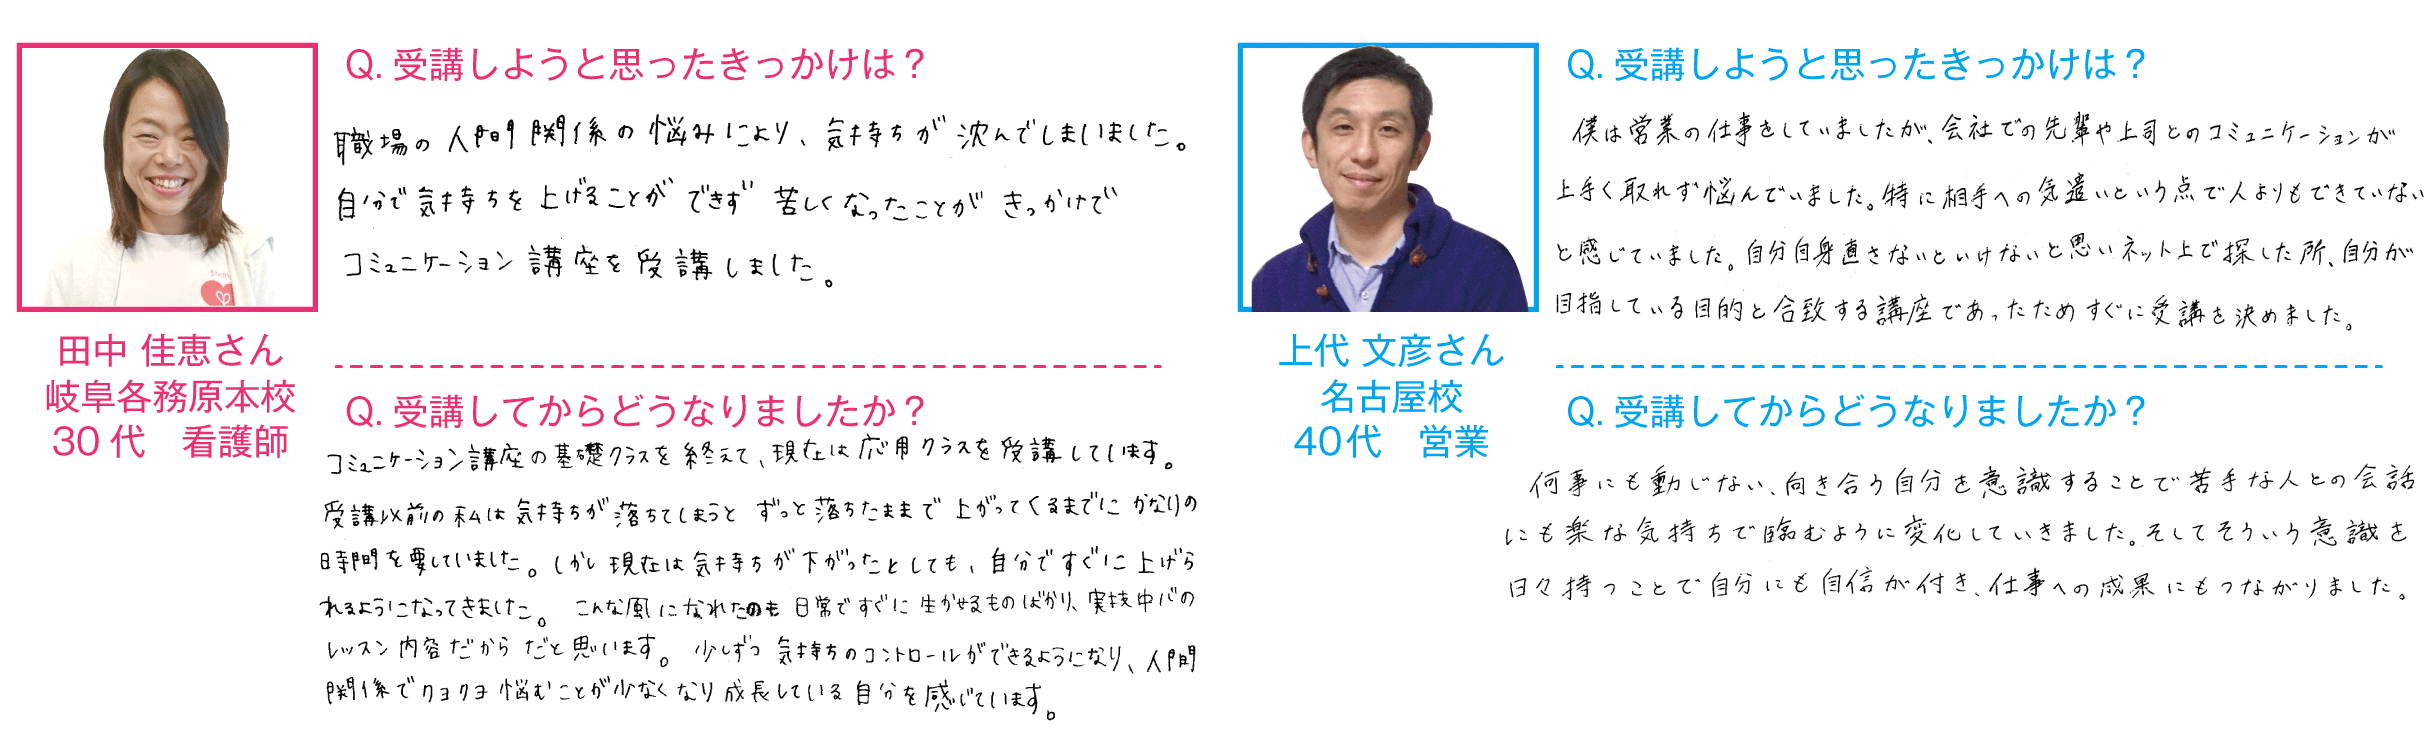 Q. 受講しようと思ったきっかけは？
職場の人間関係の悩みにより、気持ちが沈んでしまいました。
自分で気持ちを上げることができず苦しくなったことがきっかけで
コミュニケーション講座を受講しました。
田中 佳恵さん
岐阜各務原本校
30代　看護師
Q. 受講してからどうなりましたか？
コミュニケーション講座の基礎クラスを終えて、現在は応用クラスを受講しています。
受講以前の私は気持ちが落ちてしまうとずっと落ちたままで上がってくるまでにかなりの
時間を要していました。しかし現在は気持ちが下がったとしても、自分ですぐに上げら
れるようになってきました。こんな風になれたのも日常ですぐに生かせるものばかり、実技中心の
レッスン内容だからだと思います。少しずつ気持ちのコントロールができるようになり、人間
関係でクヨクヨ悩むことが少なくなり成長している自分を感じています。
Q. 受講しようと思ったきっかけは？
僕は営業の仕事をしていましたが、会社での先輩や上司とのコミュニケーションが
上手く取れず悩んでいました。特に相手への気遣いという点で人よりもできていない
と感じていました。自分自身直さないといけないと思いネット上で探した所、自分が
目指している目的と合致する講座であったためすぐに受講を決めました。
上代 文彦さん
名古屋校
40代　営業
Q. 受講してからどうなりましたか？
何事にも動じない、向き合う自分を意識することで苦手な人との会話
にも楽な気持ちで臨むように変化していきました。そしてそういう意識を
日々持つことで自分にも自信が付き、仕事への成果にもつながりました。